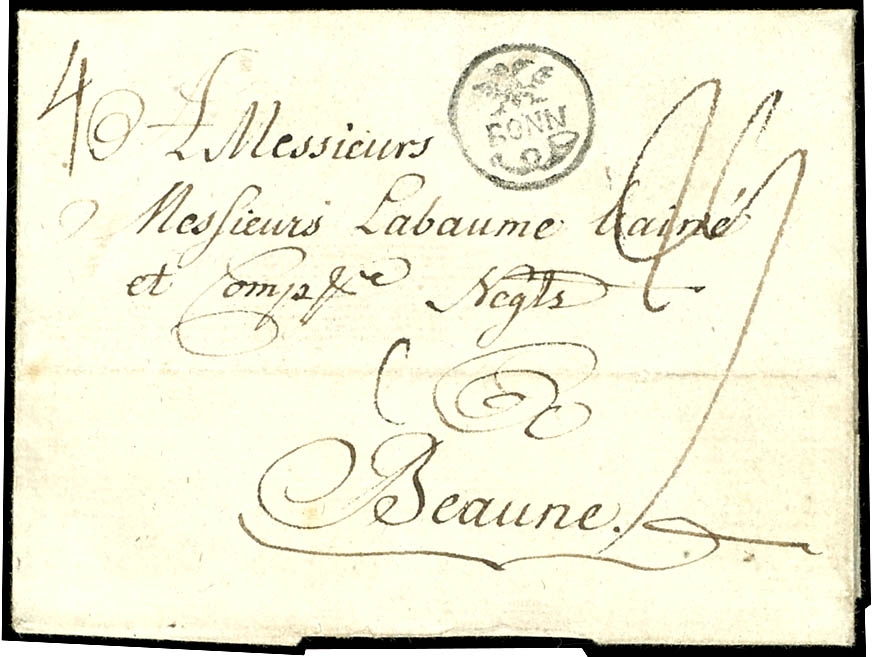 4
A Messieurs
BONN
Messieurs Labaume l'ainé
et Comp Negts
à
Beaune.